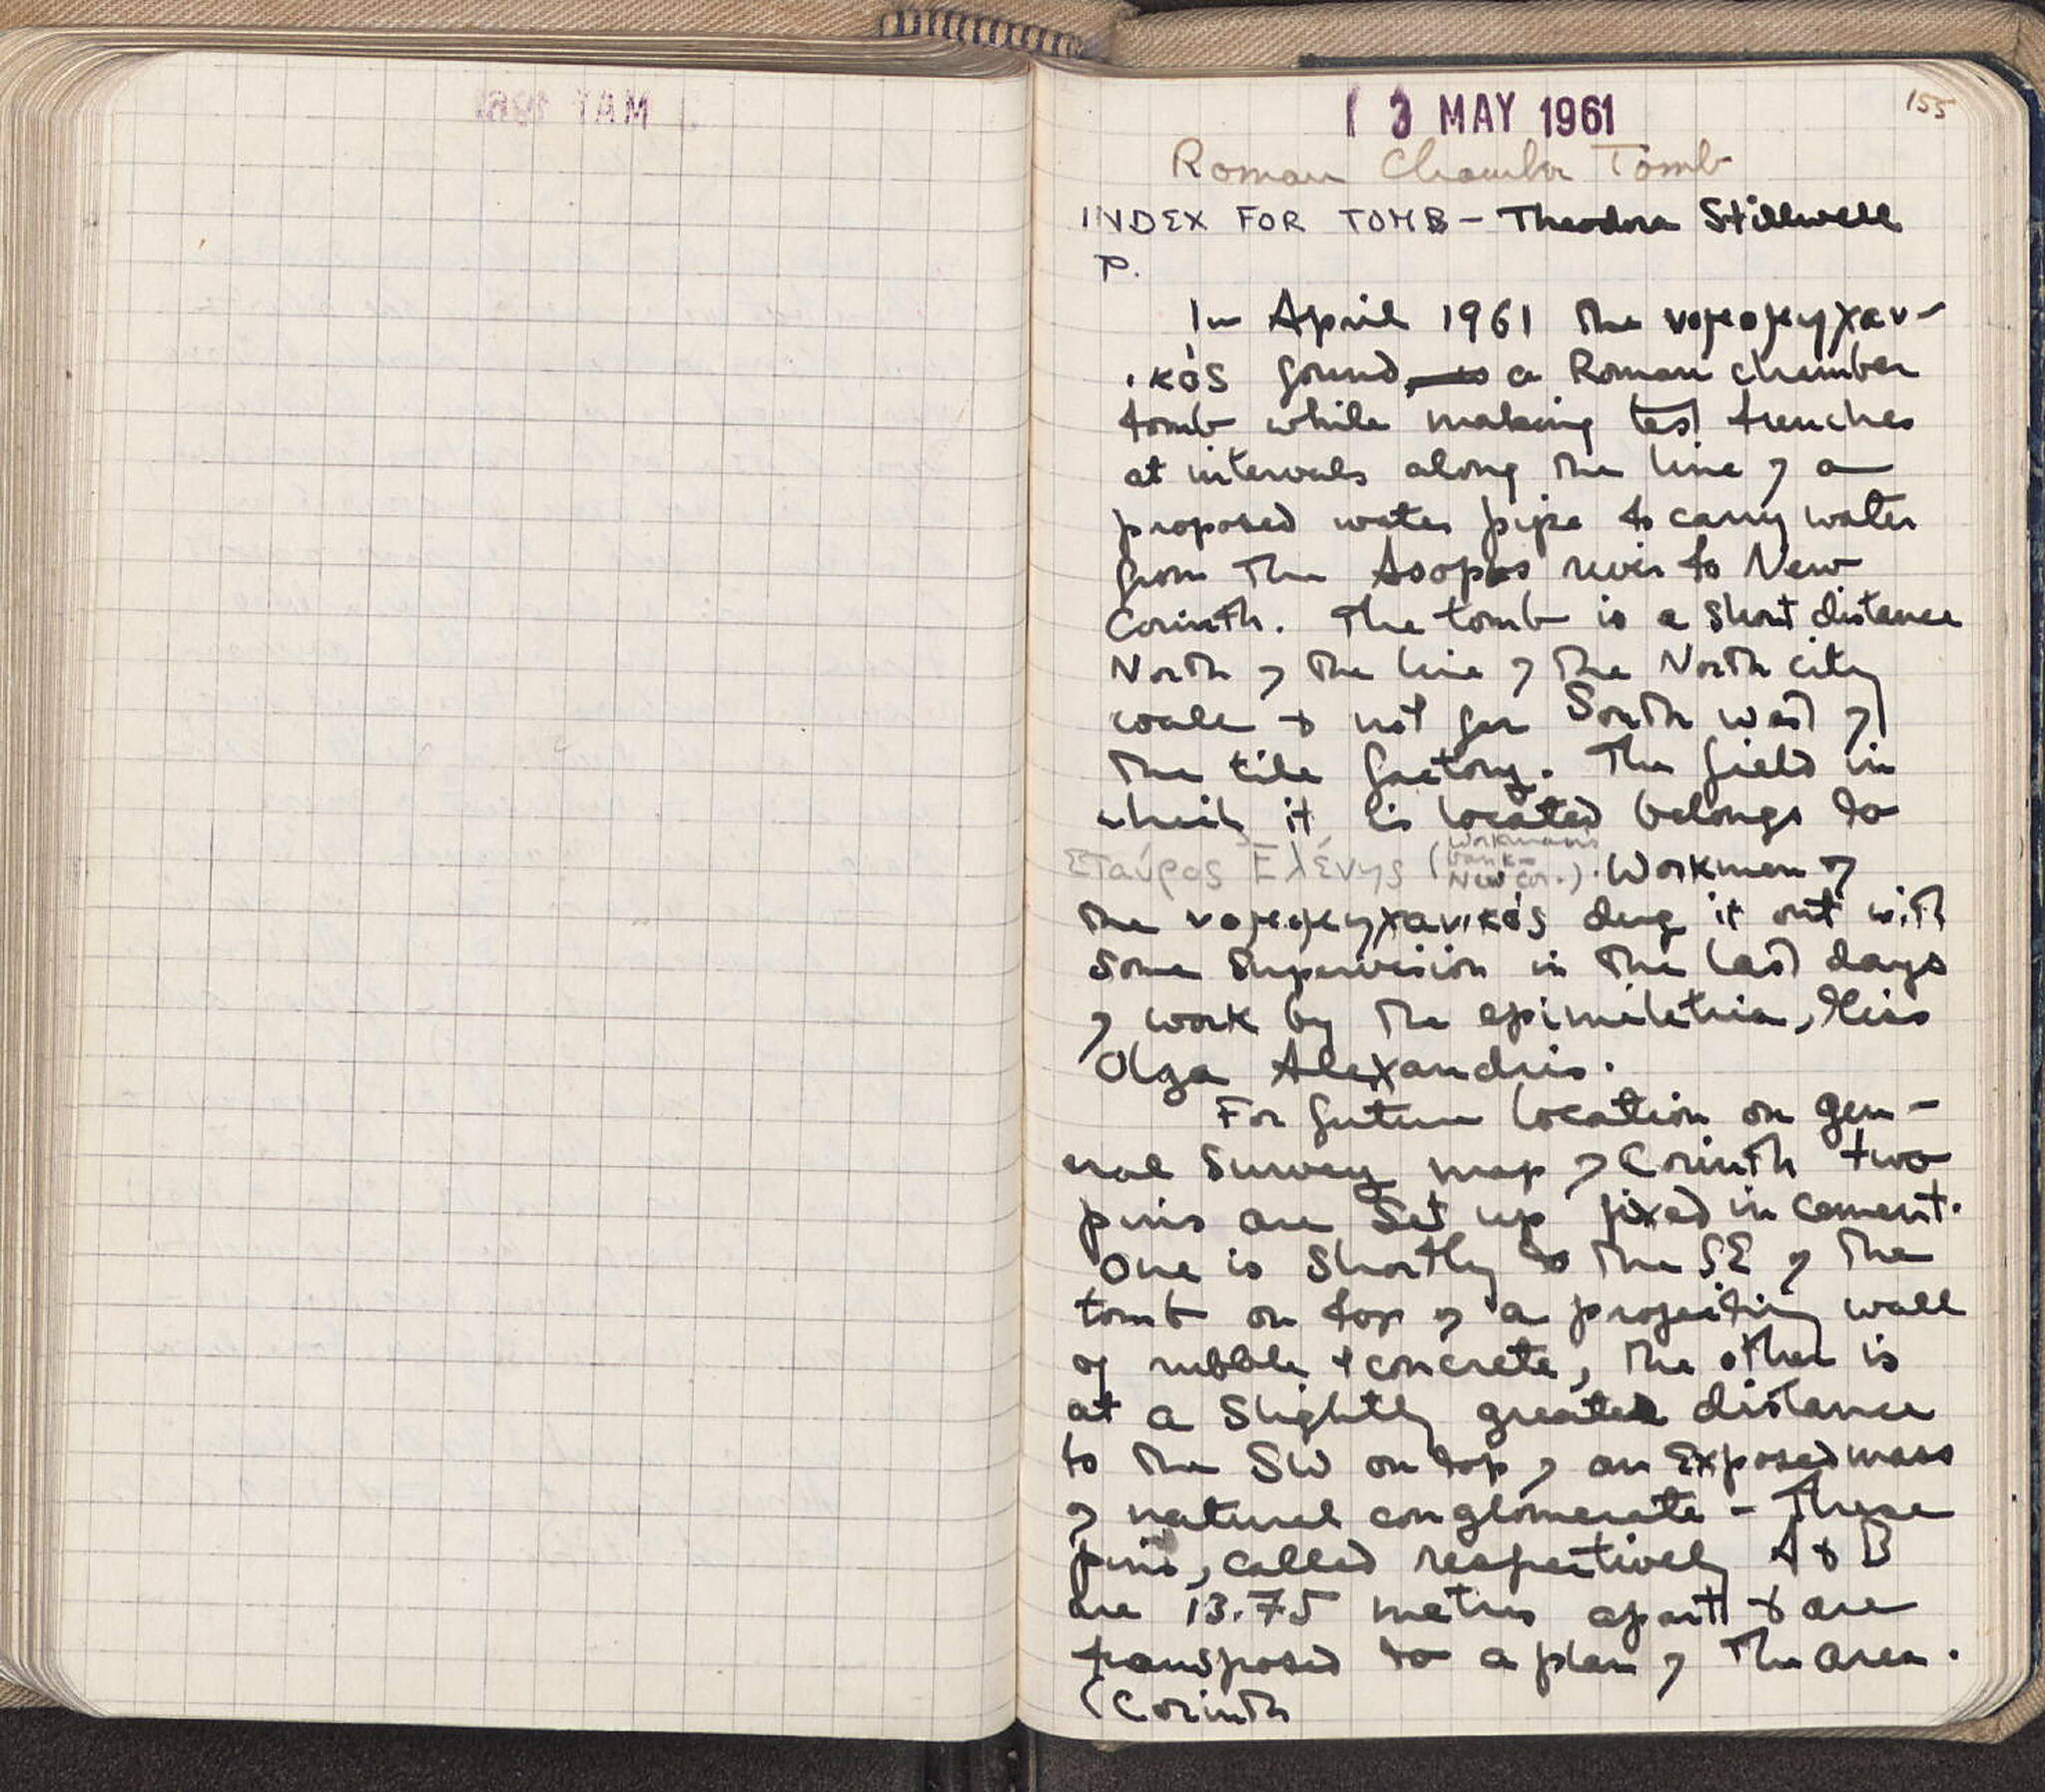 155
13 MAY 1961
Roman Chamber Tomb
INDEX FOR TOMB – Theodora Stillwell
P.
In April 1961 the νομομηχαν-
ικός found, a Roman chamber
tomb while making test trenches
at intervals along the line of a
proposed water pipe to carry water
from the Asopos river to New
Corinth. The tomb is a short distance
North of the line of the North city
wall + not far South west of
the tile factory. The field in
which it is located belongs to
Σταύρος Ελένης (Workman's bank – New Cor.). Workmen of
the νομομηχανικός dug it out with
some supervision in the last days
of work by the epimeletria, Miss
Olga Alexandris.
For future location on gen-
eral survey map of Corinth two
pins are set up fixed in cement.
One is shortly to the SE of the
tomb on top of a projecting wall
of rubble + concrete, the other is
at a slightly greater distance
to the SW on top of an exposed mass
of natural conglomerate – These
pins, called respectively A + B
are 13.75 metres apart + are
transposed to a plan of the area.
(Corinth